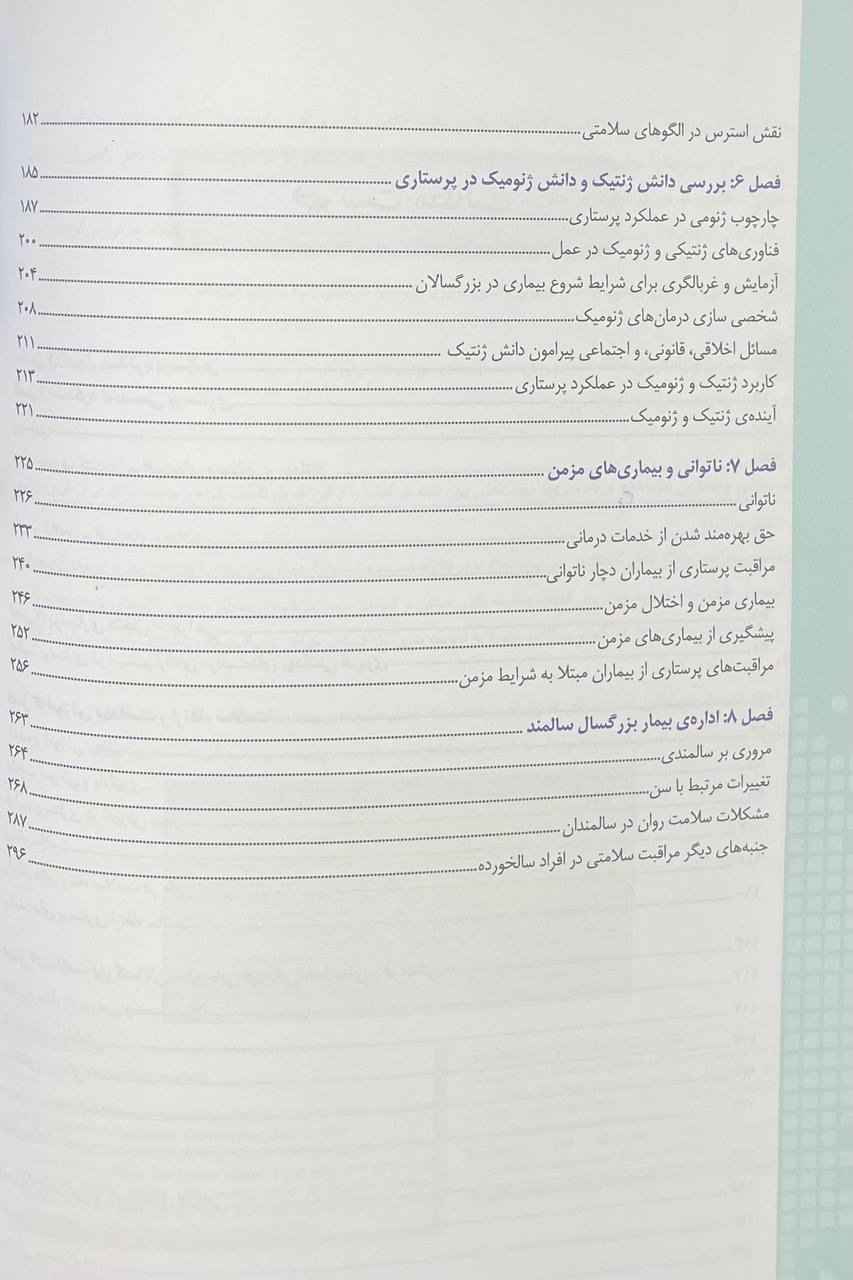 نقش استرس در الگوهای سلامتی ........ ۱۸۲
فصل ۶: بررسی دانش ژنتیک و دانش ژنومیک در پرستاری ........ ۱۸۵
چارچوب ژنومی در عملکرد پرستاری ........ ۱۸۷
فناوری‌های ژنتیکی و ژنومیک در عمل ........ ۲۰۰
آزمایش و غربالگری برای شرایط شروع بیماری در بزرگسالان ........ ۲۰۴
شخصی سازی درمان‌های ژنومیک ........ ۲۰۸
مسائل اخلاقی، قانونی، و اجتماعی پیرامون دانش ژنتیک ........ ۲۱۱
کاربرد ژنتیک و ژنومیک در عملکرد پرستاری ........ ۲۱۳
آینده‌ی ژنتیک و ژنومیک ........ ۲۲۱
فصل ۷: ناتوانی و بیماری‌های مزمن ........ ۲۲۵
ناتوانی ........ ۲۲۶
حق بهره‌مند شدن از خدمات درمانی ........ ۲۳۳
مراقبت پرستاری از بیماران دچار ناتوانی ........ ۲۴۰
بیماری مزمن و اختلال مزمن ........ ۲۴۶
پیشگیری از بیماری‌های مزمن ........ ۲۵۲
مراقبت‌های پرستاری از بیماران مبتلا به شرایط مزمن ........ ۲۵۶
فصل ۸: اداره‌ی بیمار بزرگسال سالمند ........ ۲۶۳
مروری بر سالمندی ........ ۲۶۴
تغییرات مرتبط با سن ........ ۲۶۸
مشکلات سلامت روان در سالمندان ........ ۲۸۷
جنبه‌های دیگر مراقبت سلامتی در افراد سالخورده ........ ۲۹۶